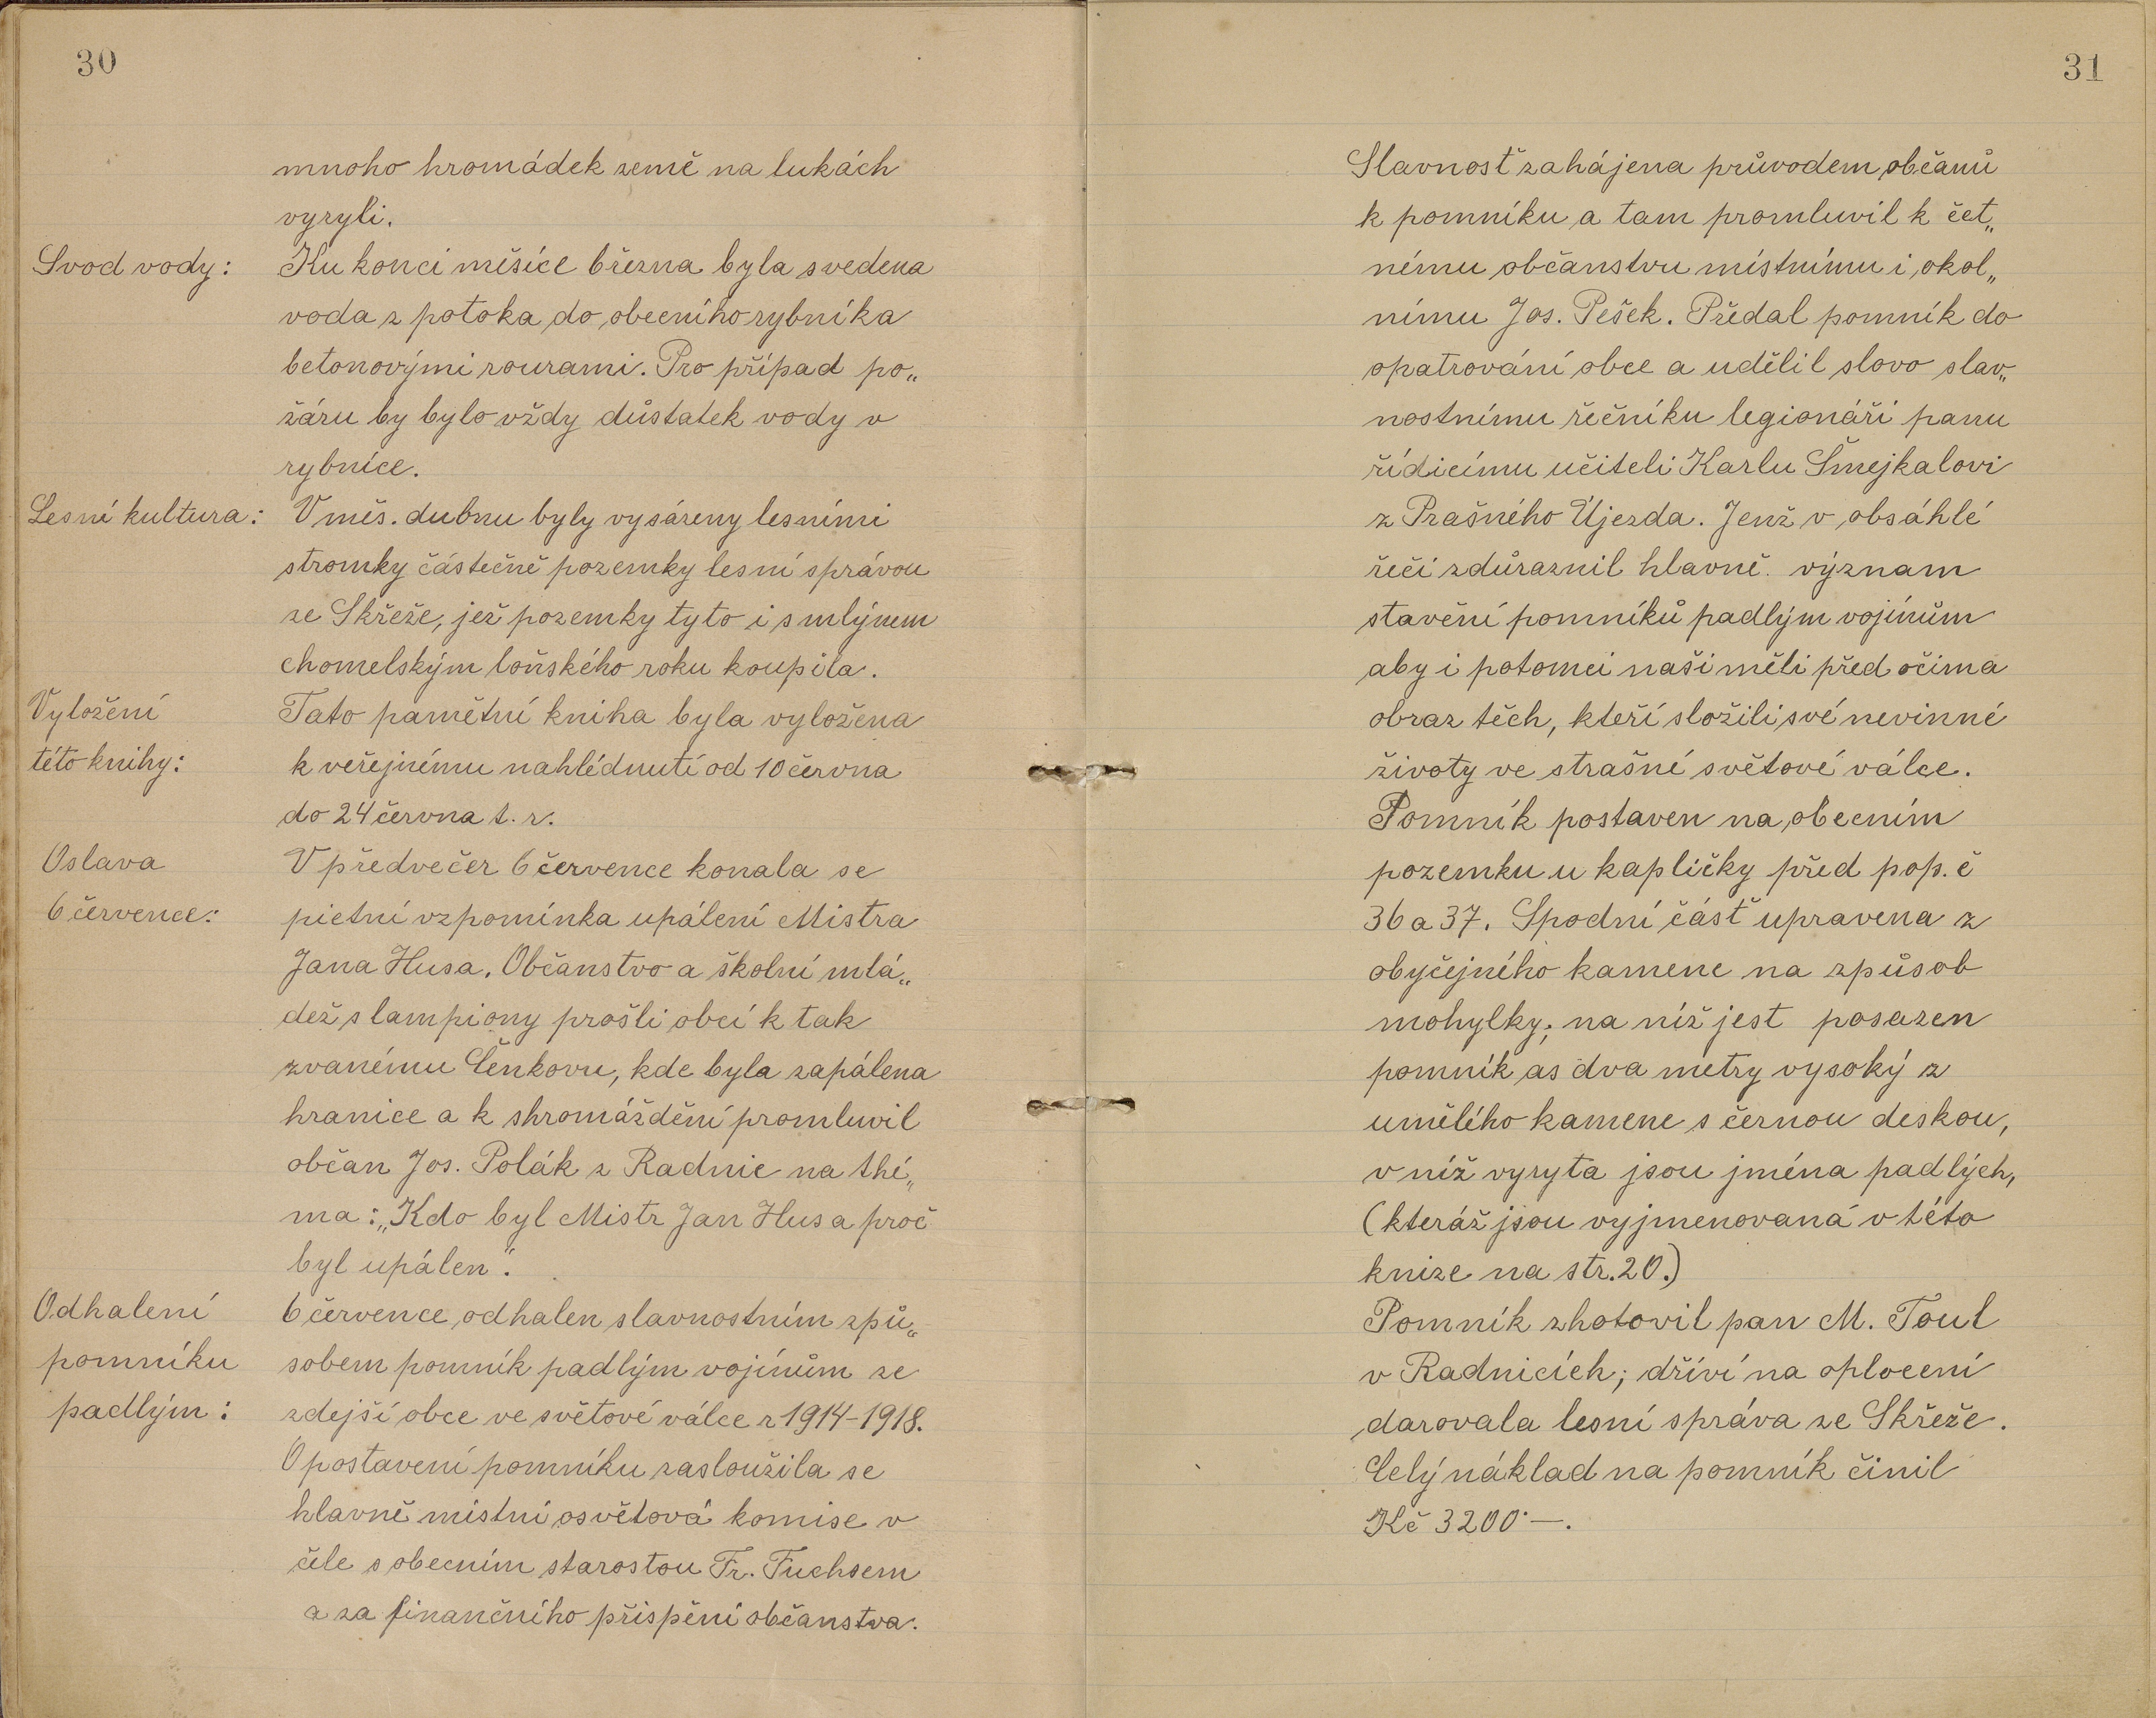 30
mnoho hromádek země na lukách
vyryli.
Svod vody:
Ku konci měsíce března byla svedena
voda z potoka do obecního rybníka
betonovými rourami. Pro případ po„
žáru by bylo vždy důstatek vody v
rybníce.
Lesní kultura:
V měs. dubnu byly vysázeny lesními
stromky částečně pozemky lesní správou
ze Skřeže, jež pozemky tyto i s mlýnem
chomelským loňského roku koupila.
Vyložení
této knihy:
Tato pamětní kniha byla vyložena
k veřejnému nahlédnutí od 10 června
do 24 června t. r.
Oslava
6 července:
V předvečer 6 července konala se
pietní vzpomínka upálení Mistra
Jana Husa. Občanstvo a školní mlá„
dež s lampiony prošli obcí k tak
zvanému Čenkovu, kde byla zapálena
hranice a k shromáždění promluvil
občan Jos. Polák z Radnic na thé„
ma: „Kdo byl Mistr Jan Hus a proč
byl upálen“.
Odhalení
pomníku
padlým:
6 července odhalen slavnostním způ„
sobem pomník padlým vojínům ze
zdejší obce ve světové válce r 1914-1918.
O postavení pomníku zasloužila se
hlavně místní osvětová komise v
čele s obecním starostou Fr. Fuchsem
a za finančního přispění občanstva.
31
Slavnosť zahájena průvodem občanů
k pomníku a tam promluvil k čet„
nému občanstvu místnímu i okol„
nímu Jos. Pešek. Předal pomník do
opatrování obce a udělil slovo slav„
nostnímu řečníku legionáři panu
řídicímu učiteli Karlu Šmejkalovi
z Prašného Újezda. Jenž v obsáhlé
řeči zdůraznil hlavně význam
stavění pomníků padlým vojínům
aby i potomci naši měli před očima
obraz těch, kteří složili své nevinné
životy ve strašné světové válce.
Pomník postaven na obecním
pozemku u kapličky před pop. č
36 a 37. Spodní část upravena z
obyčejného kamene na způsob
mohylky; na níž jest posazen
pomník as dva metry vysoký z
umělého kamene s černou deskou,
v níž vyryta jsou jména padlých,
(kteráž jsou vyjmenovaná v této
knize na str. 20.)
Pomník zhotovil pan M. Toul
v Radnicích; dříví na oplocení
darovala lesní správa ze Skřeže.
Celý náklad na pomník činil
Kč 3200·—.